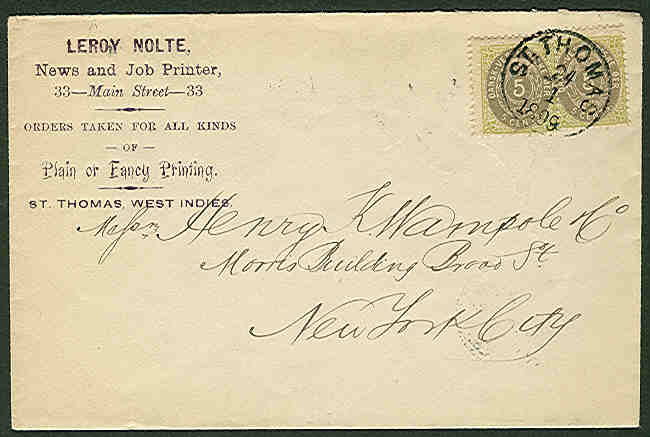 LEROY NOLTE,
News and Job Printer,
33—Main Street—33
ORDERS TAKEN FOR ALL KINDS
— OF —
Plain or Fancy Printing.
ST. THOMAS, WEST INDIES.
ST. THOMAS
24
1
5
CENTS
Messrs Henry K Wampole & Co
Morris Building Broad St.
New York City